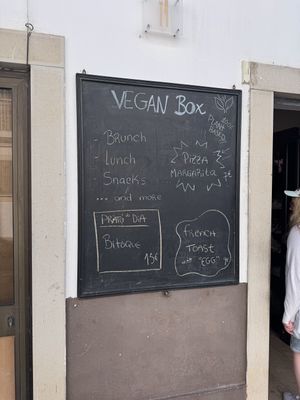 VEGAN BOX
100%
PLANT
BASED
- Brunch
- Lunch
- Snacks
... and more
PIZZA
MARGARITA
PRATO do DIA
Bitoque
15€
FRENCH
TOAST
with "EGG"